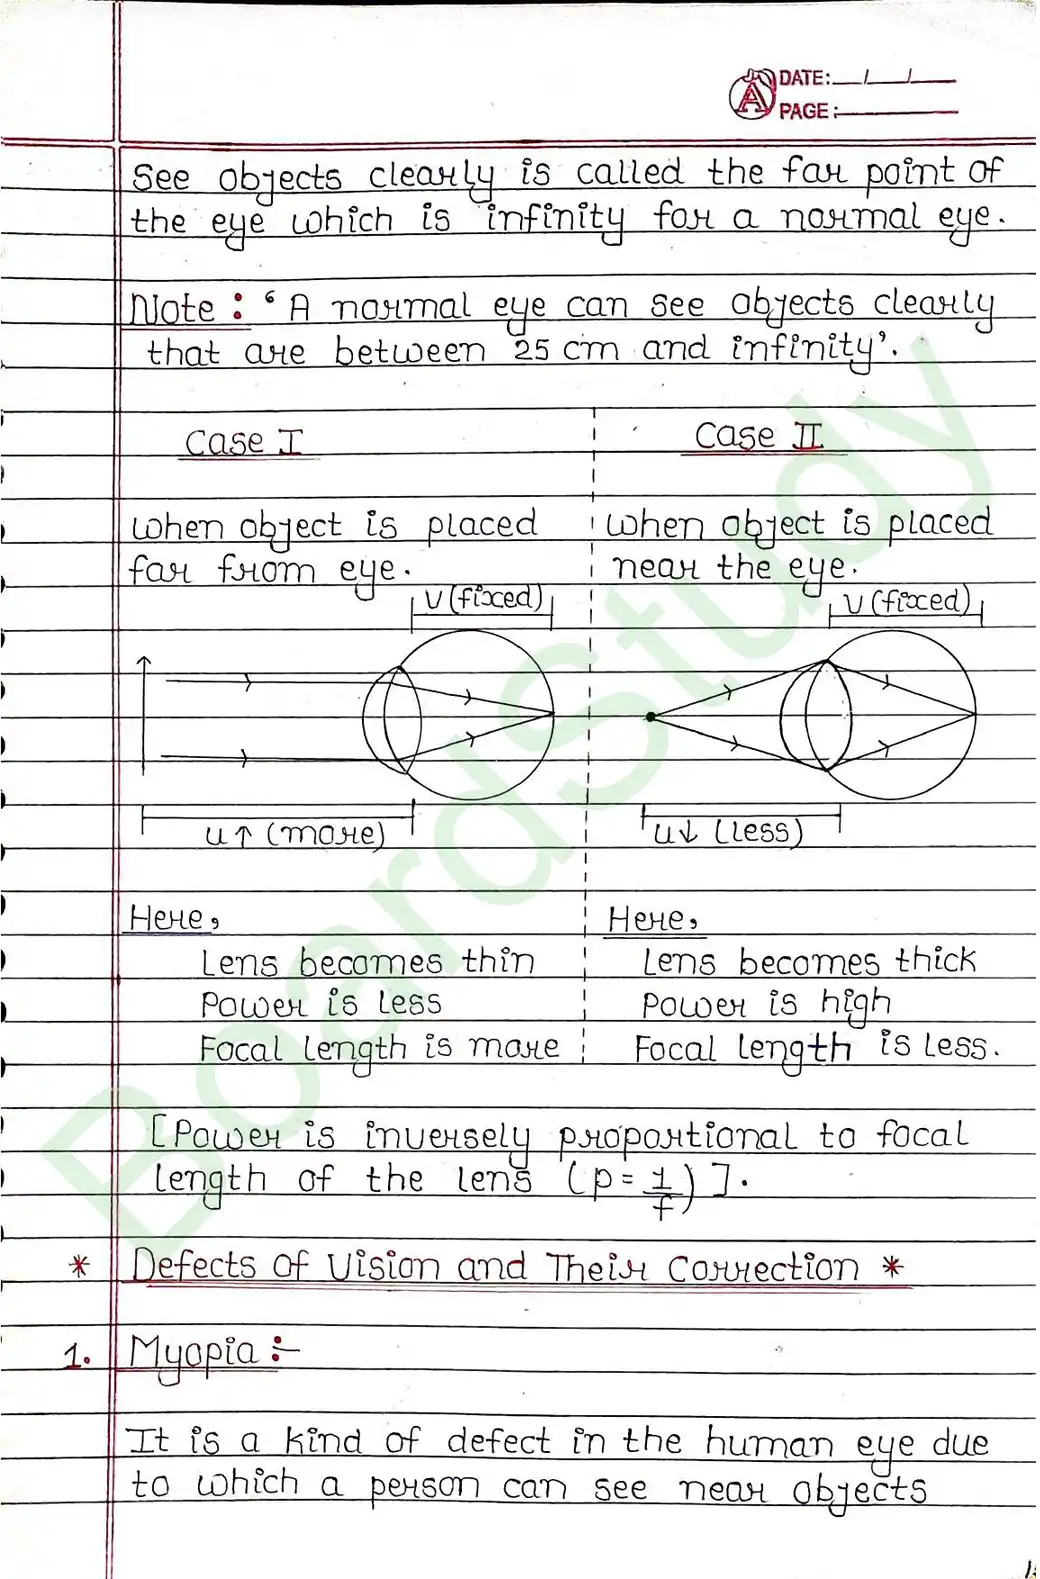 DATE: __/__/__
PAGE:
see objects clearly is called the far point of
the eye which is infinity for a normal eye.
Note : ‘A normal eye can see objects clearly
that are between 25 cm and infinity’.
Case I
Case II
When object is placed
far from eye.
When object is placed
near the eye.
V (fixed)
V (fixed)
u↑ (more)
u↓ (less)
Here,
Lens becomes thin
Power is less
Focal length is more
Here,
Lens becomes thick
Power is high
Focal length is less.
[Power is inversely proportional to focal
length of the lens (p = 1/f)].
* Defects of Vision and Their Correction *
1. Myopia :-
It is a kind of defect in the human eye due
to which a person can see near objects
BoardStudy